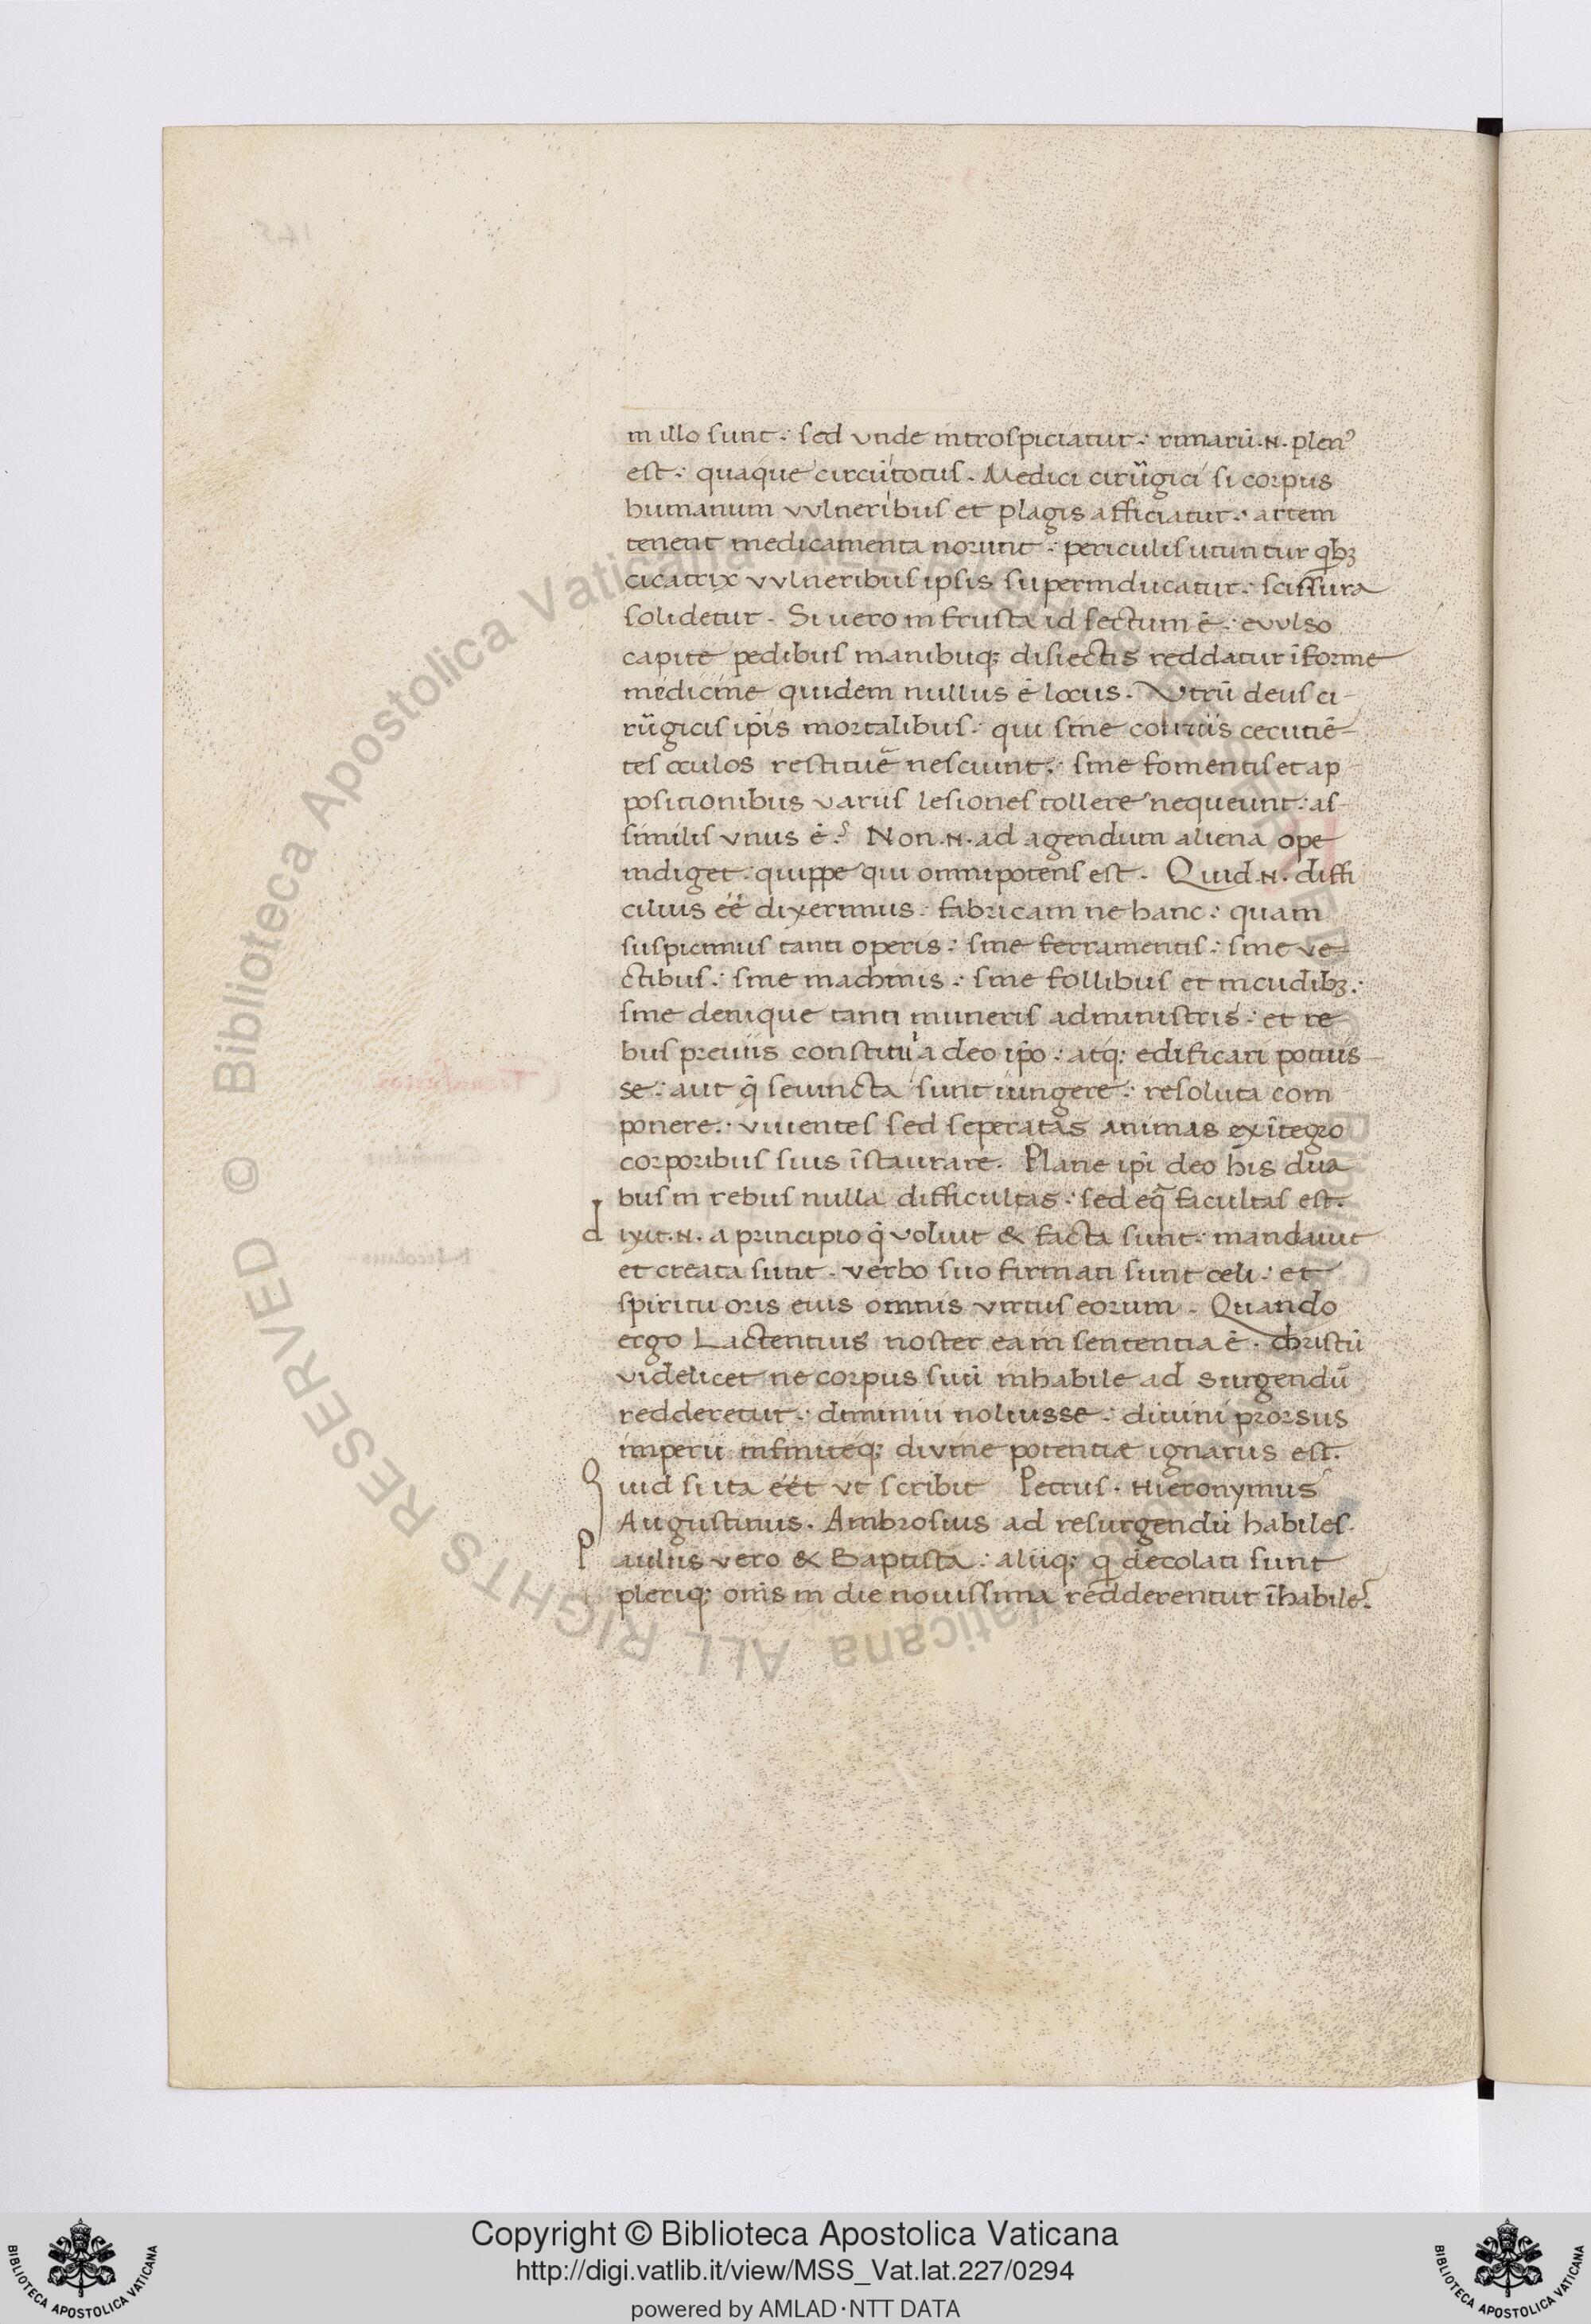 in illo sunt: sed unde introspiciatur: rimarū .N. plenꝰ
est: quaque circūtotus. Medici cirūgici si corpus
humanum vvlneribus et plagis afficiatur: artem
tenent medicamenta norunt: periculis utuntur qbꝫ
cicatrix vvlneribus ipsis superinducatur: scissura
solidetur. Si uero in frusta id sectum ē: evvlso
capite pedibus manibuqꝫ disiectis reddatur īforme
medicine quidem nullus ē locus. Vtrū deus ci-
rūgicis ip̄is mortalibus: qui sine coliriis cecutiē-
tes oculos restituē nesciunt: sine fomentis et ap
positionibus variis lesiones tollere nequeunt: as-
similis vnus ē? Non .N. ad agendum aliena ope
indiget: quippe qui omnipotens est. Quid .N. diffi
cilius eē dixerimus: fabricam ne hanc: quam
suspicimus tanti operis: sine ferramentis: sine ve-
ctibus: sine machinis: sine follibus et incudibꝫ:
sine denique tanti muneris administris: et re
bus previis constitui a deo ip̄o: atqꝫ edificari potuis-
se: aut q̄ seiuncta sunt iungere: resoluta com
ponere: viuentes sed seperatas animas ex ītegro
corporibus suis īstaurare. Plane ip̄i deo his dua
bus in rebus nulla difficultas: sed eq̄ facultas est.
d ixit .N. a principio q̄ voluit & facta sunt: mandauit
et creata sunt. verbo suo firmati sunt celi: et
spiritu oris eius omnis virtus eorum. Quando
ergo Lactentius noster eam sententia ē. christū
videlicet ne corpus suū inhabile ad surgendū
redderetur: diminui noluisse: diuini prorsus
imperii infiniteqꝫ divine potentiæ ignarus est.
Q uid si ita eēt vt scribit Petrus. Hieronymus
Augustinus. Ambrosius ad resurgendū habiles.
P aulus vero & Baptista: aliiqꝫ q decolati sunt
pleriqꝫ om̄s in die nouissima redderentur īhabiles.
Copyright © Biblioteca Apostolica Vaticana
http://digi.vatlib.it/view/MSS_Vat.lat.227/0294
powered by AMLAD·NTT DATA
BIBLIOTECA APOSTOLICA VATICANA
BIBLIOTECA APOSTOLICA VATICANA
© Biblioteca Apostolica Vaticana ALL RIGHTS RESERVED